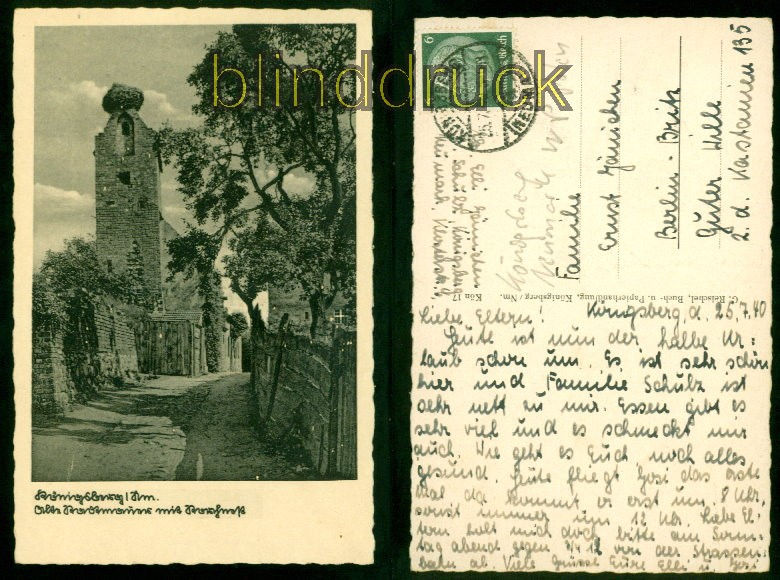 blinddruck
Königsberg/Nm.
Alte Stadtmauer mit Storchnest
6
Elli Jänichen
Schulz Königsberg
Neumark
Königsberg
Neumark
Familie
Ernst Jänichen
Berlin-Britz
Guter Wille
2. d. Kastanien 135
G. Reischel, Buch- u. Papierhandlung, Königsberg/Nm. Kön 12
Liebe Eltern! Königsberg d. 25.7.40
Heute ist nun der halbe Ur-
laub schon um. Es ist sehr schön
hier und Familie Schulz ist
sehr nett zu mir. Essen gibt es
sehr viel und es schmeckt mir
auch. Wie geht es Euch noch alles
gesund. Heute fliegt das erste
mal da kommt er erst um 8 Uhr,
sonst immer um 12 Uhr. Liebe El-
tern holt mich doch bitte am Sonn-
tag abend gegen von der Strassen-
bahn ab. Viele Grüsse Eure Elli u.